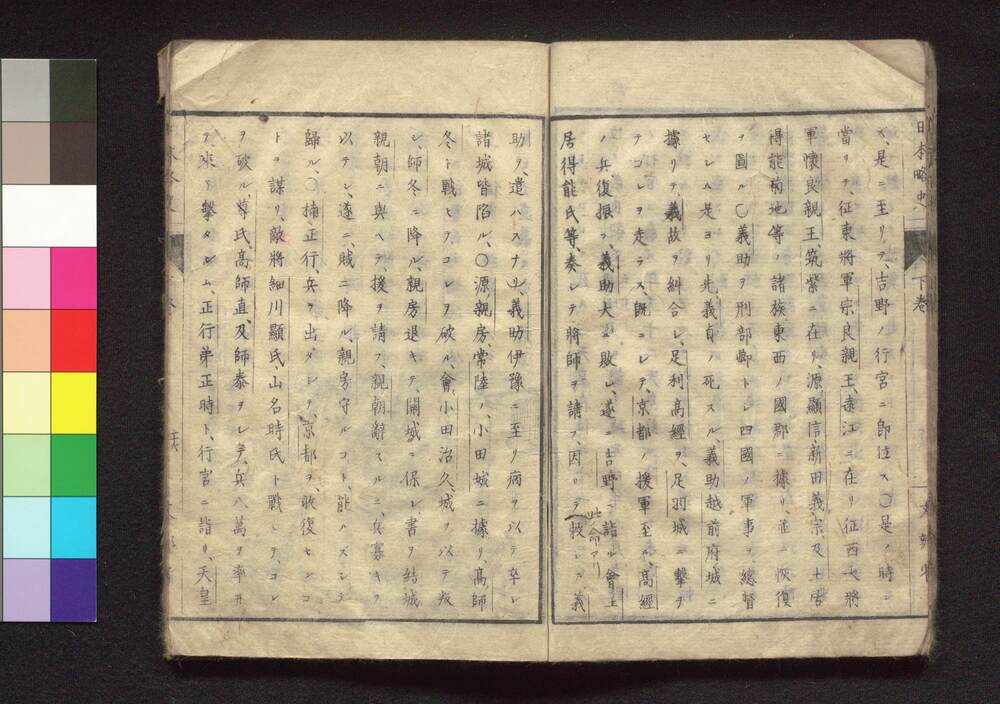 日本略史 下巻
ス、是ニ至リテ、吉野ノ行宮ニ即位ス〇是ノ時ニ
當リテ、征東將軍宗良親王、遠江ニ在リ征西大將
軍懷良親王、筑紫ニ在リ、源顯信、新田義宗及土居
得能菊地等ノ諸族東西ノ國郡ニ據リ、並ニ恢復
ヲ圖ル〇義助ヲ刑部卿トシ四國ノ軍事ヲ總督
セシム是ヨリ先、義貞ノ死スル、義助越前府城ニ
據リテ、義故ヲ糾合シ、足利高經ヲ、足羽城ニ擊ヲ
テコレヲ走ラス既ニシテ、京都ノ援軍至ル、高經
ノ兵復振フ、義助大ニ敗レ、遂ニ吉野ニ詣ル會土
居得能氏等、奏シテ將師ヲ請フ、因リテ 此命アリ 校シテ義
助ヲ、遣ハス、義助伊豫ニ至リ病ヲ以テ卒シ
諸城皆陷ル、〇源親房、常陸ノ、小田城ニ據リ高師
冬ト戰ヒテコレヲ破ル、會小田治久、城ヲ以テ叛
シ、師冬ニ降ル、親房退キテ、關城ニ保シ、書ヲ結城
親朝ニ與ヘテ、援ヲ請フ、親朝辭スルニ、兵寡キヲ
以テシ、遂ニ、賊ニ降ル、親房守ルコト、能ハズシテ
歸ル、〇楠正行、兵ヲ出ダシテ、京都ヲ、收復センコ
トヲ謀リ、敵將細川顯氏、山名時氏ト戰ヒテ、コレ
ヲ破ル、尊氏、高師直、及師泰ヲシテ、兵八萬ヲ率ヰ
テ來リ擊タシム、正行弟正時ト、行宮ニ詣リ、天皇